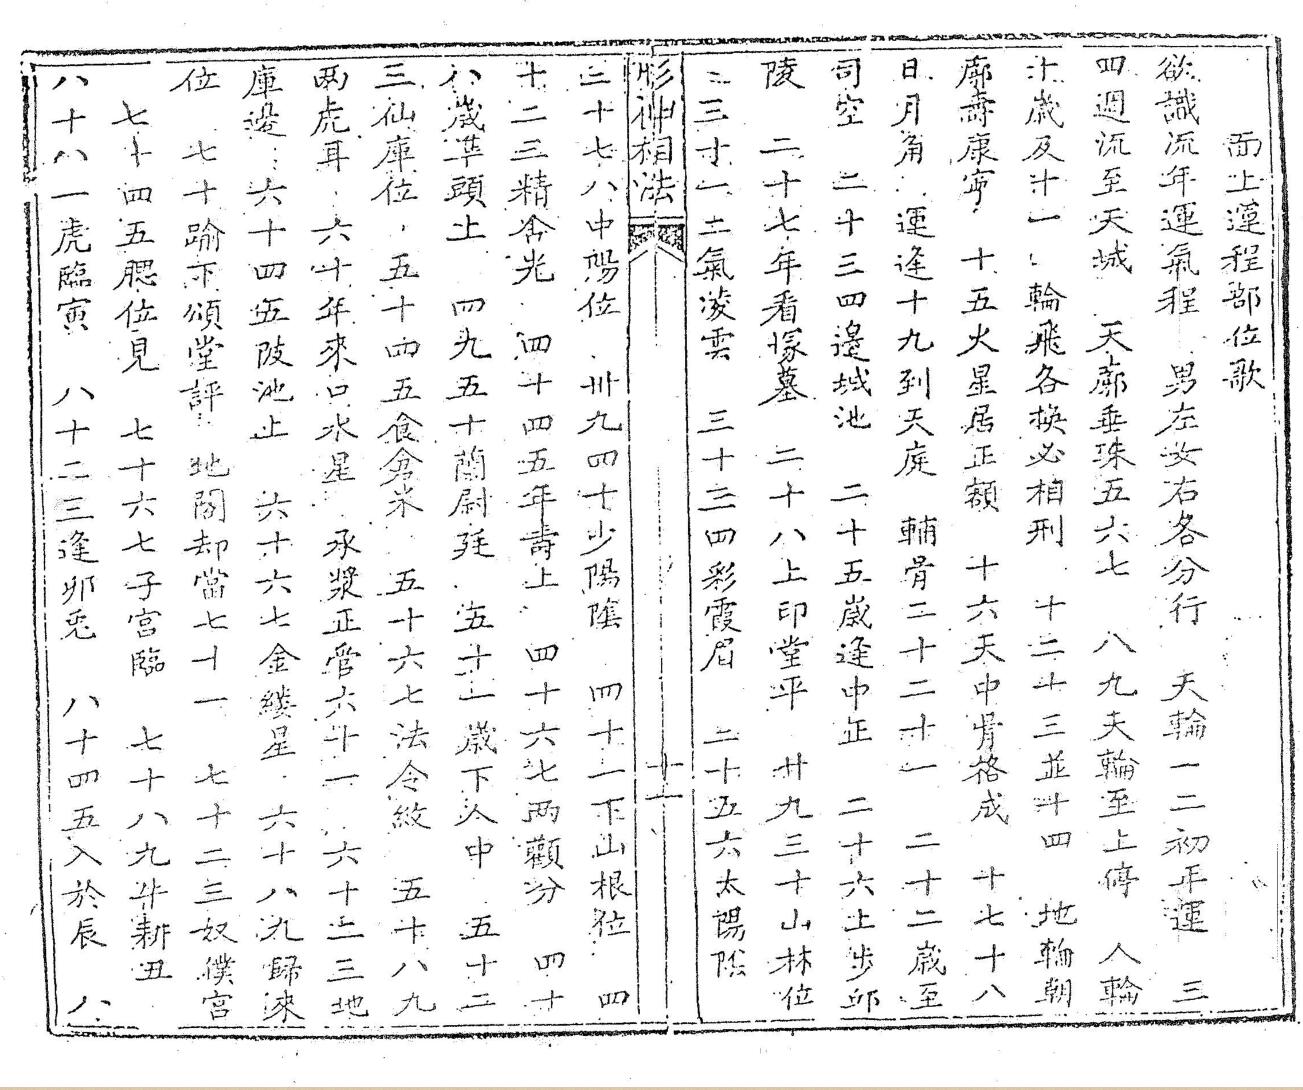 面上運程部位歌
欲識流年運氣程 男左女右各分行 天輪一二初年運 三
四週流至天城 天廓垂珠五六七 八九天輪至上停 人輪
十歲及十一 輪飛各換必相刑 十二十三並十四 地輪朝
廓壽康寧 十五火星居正額 十六天中骨格成 十七十八
日月角 運逢十九到天庭 輔骨二十二十一 二十二歲至
司空 二十三四邊城池 二十五歲逢中正 二十六上步邱
陵 二十七年看塚墓 二十八上印堂平 廿九三十山林位
三十一二氣凌雲 三十三四彩霞眉 三十五六太陽陰
形神相法
十一
三十七八中陽位 卅九四十少陽陰 四十一下山根位 四
十二三精舍光 四十四五年壽上 四十六七兩顴分 四十
八歲準頭上 四九五十蘭尉廷 五十一歲下人中 五十二
三仙庫位 五十四五食倉米 五十六七法令紋 五十八九
兩虎耳 六十年來口水星 承漿正管六十一 六十二三地
庫邊 六十四五陂池止 六十六七金縷星 六十八九歸來
位 七十踰下頌堂評 地閣却當七十一 七十二三奴僕宮
七十四五腮位見 七十六七子宮臨 七十八九牛耕丑
八十八一虎臨寅 八十二三逢卯兎 八十四五入於辰 八